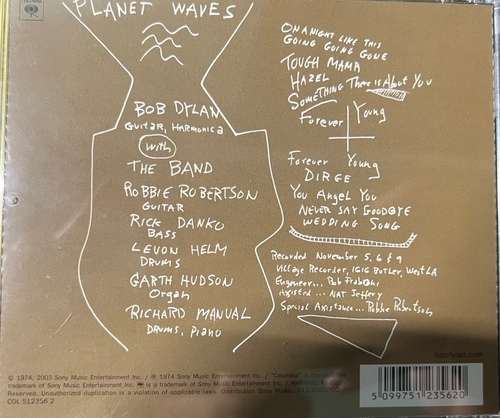 PLANET WAVES
BOB DYLAN
GUITAR, HARMONICA
with
THE BAND
ROBBIE ROBERTSON
GUITAR
RICK DANKO
BASS
LEVON HELM
DRUMS
GARTH HUDSON
Organ
RICHARD MANUAL
DRUMS, PIANO
ON A NIGHT LIKE THIS
GOING GOING GONE
TOUGH MAMA
HAZEL
SOMETHING There is About You
Forever Young
Forever Young
DIRGE
You Angel You
NEVER SAY GOODBYE
WEDDING SONG
Recorded November 5, 6 & 9
Village Recorder, 1616 Butler, West LA
Engineer... Rob Fraboni
Assisted... NAT Jeffery
Special Assistance... Robbie Robertson
© 1974, 2003 Sony Music Entertainment Inc. / ℗ 1974 Sony Music Entertainment Inc. / "Columbia"
trademark of Sony Music Entertainment Inc. is a trademark of Sony Music Entertainment Inc. /
Reserved. Unauthorized duplication is a violation of applicable laws. Distribution Sony Music
COL 512356 2
5 099751 235620